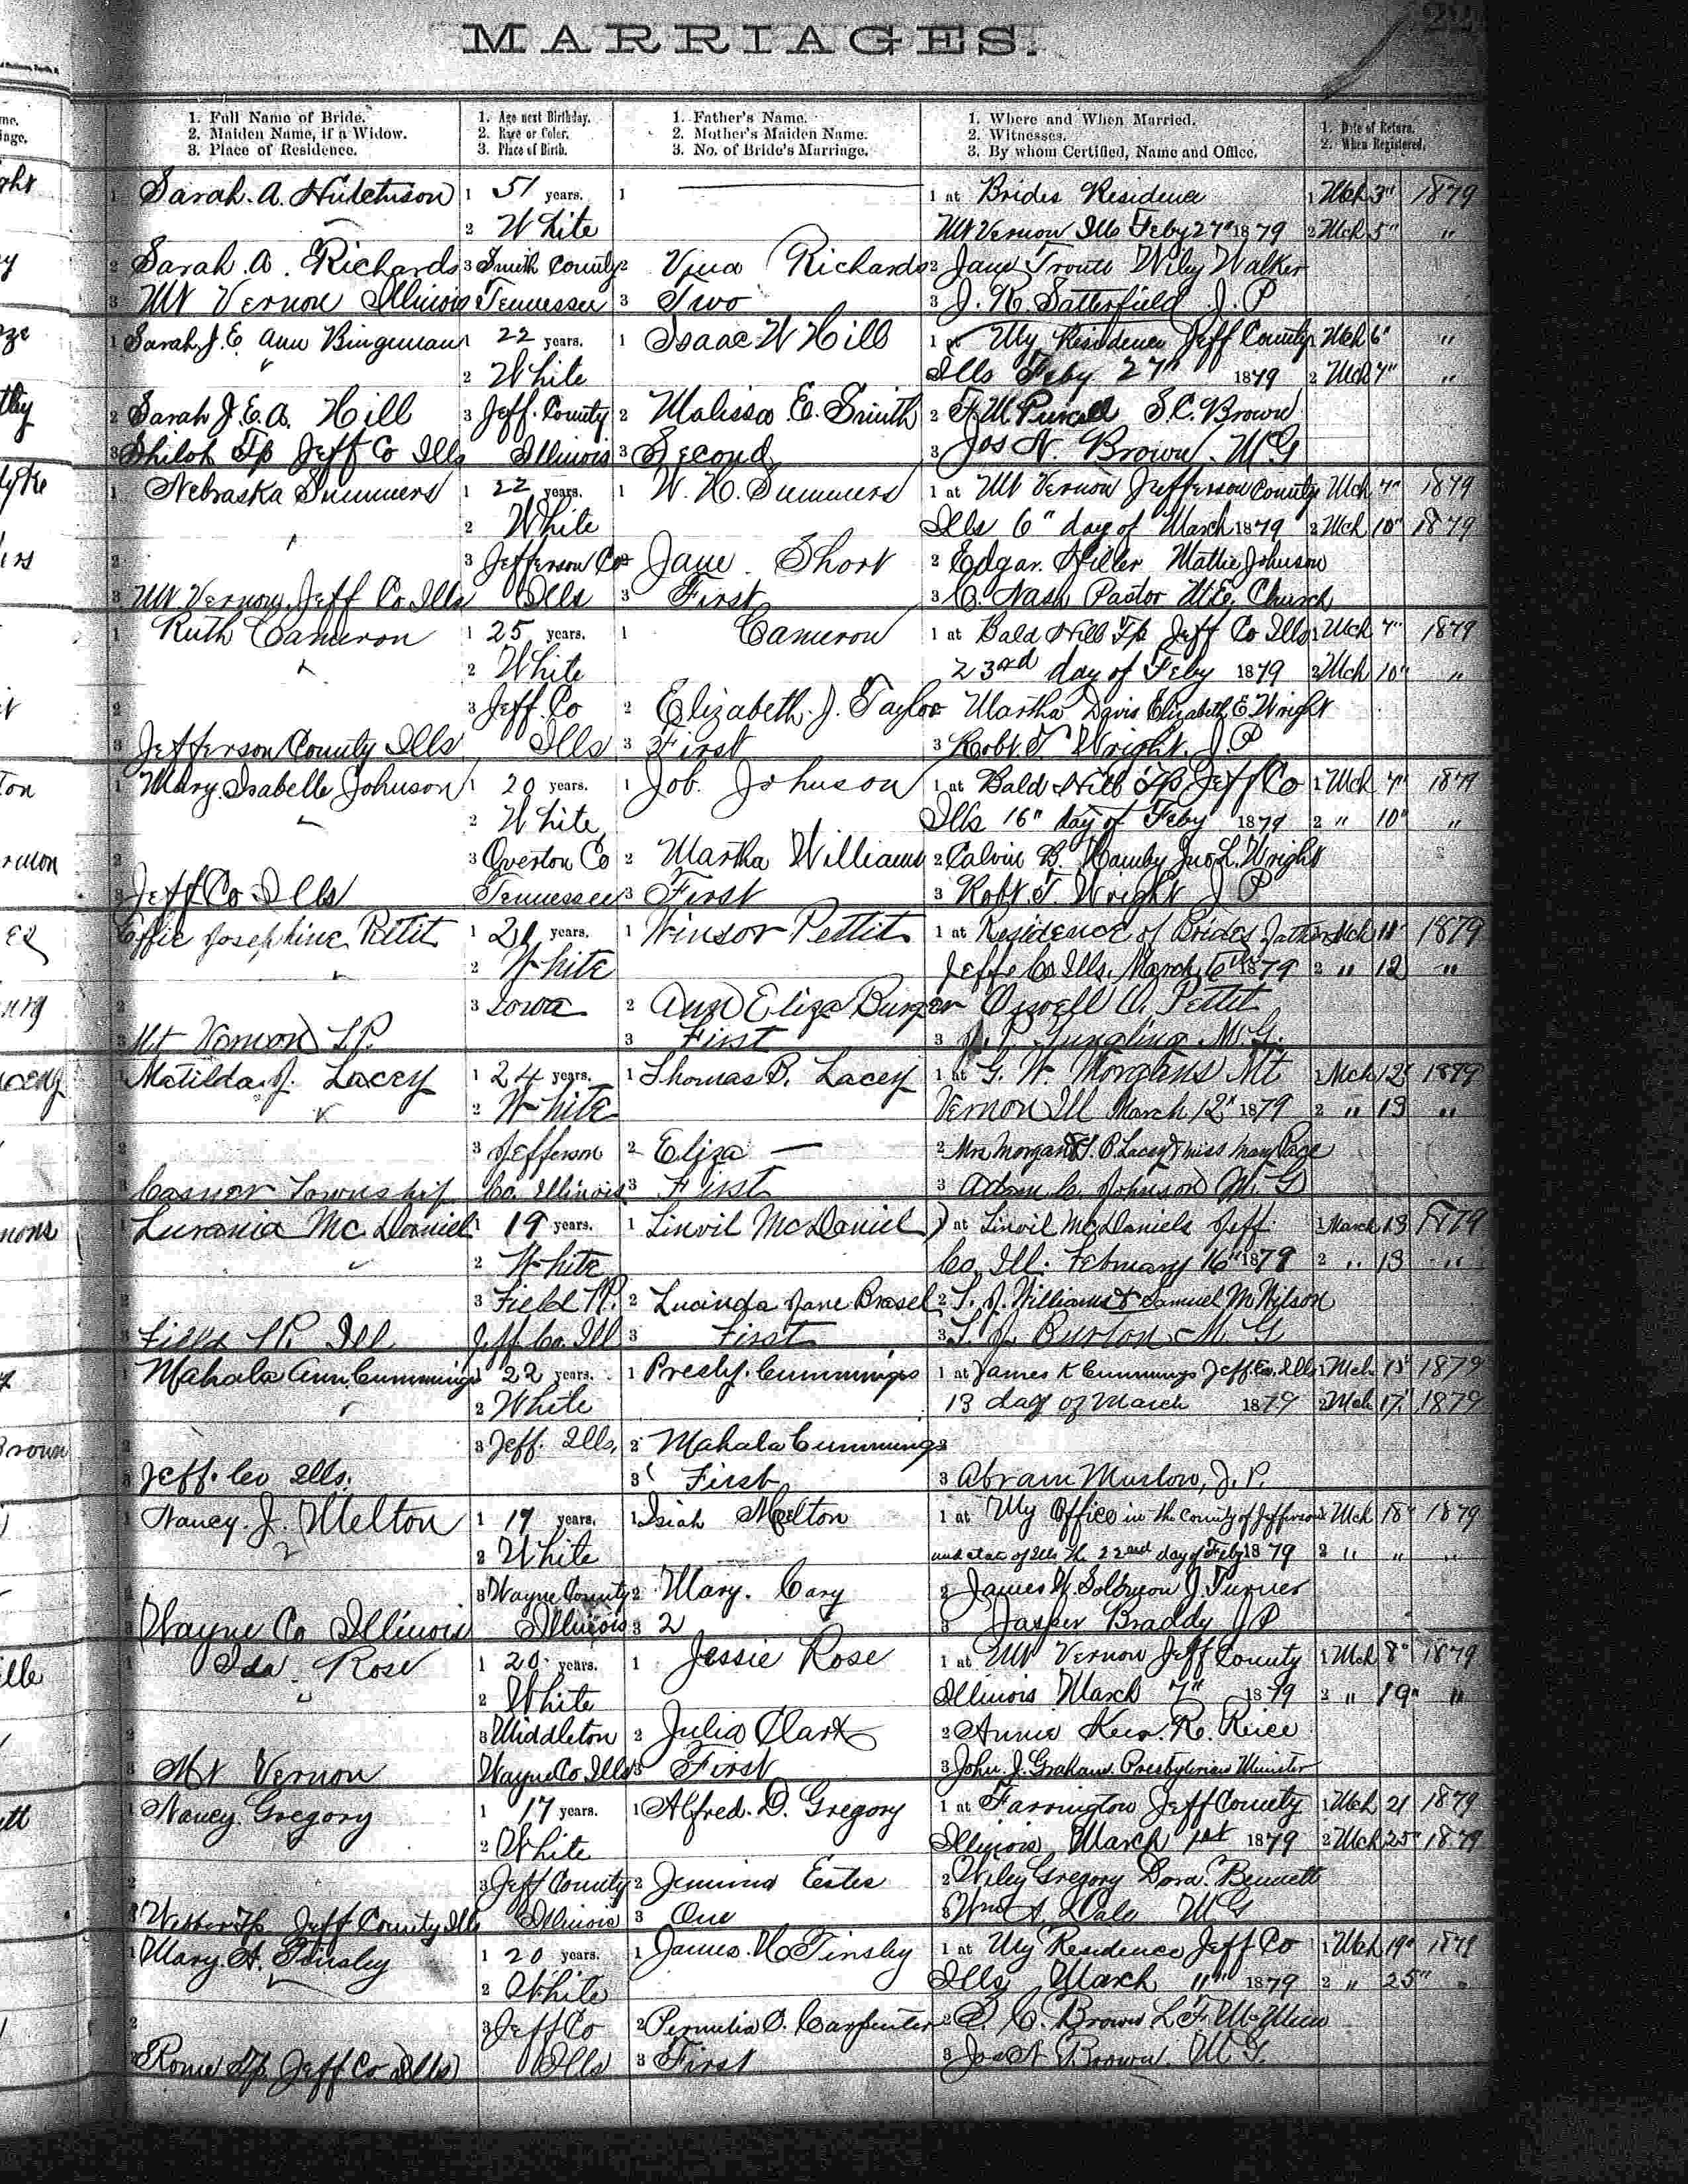 MARRIAGES.
1. Full Name of Bride. 1. Age next Birthday. 1. Father's Name. 1. Where and When Married. 1. Date of Return.
2. Maiden Name, if a Widow. 2. Race or Color. 2. Mother's Maiden Name. 2. Witnesses. 2. When Registered.
3. Place of Residence. 3. Place of Birth. 3. No. of Bride's Marriage. 3. By whom Certified, Name and Office.
1 Sarah. A. Hutchison 1 51 years. 1 1 at Brides Residence 1 Mch 3" 1879
2 White Mt Vernon Ills Feby 27" 1879 2 Mch 5" "
2 Sarah. A. Richards 3 Smith County 2 Richards 2 Jane Troutt Wiley Walker
3 Mt Vernon Illinois Tennessee 3 Two 3 J. R. Satterfield J. P
1 Sarah, J. E. Ann Bingeman 1 22 years. 1 Isaac W Hill 1 at My Residence Jeff County 1 Mch 6" "
2 White Ills Feby 27" 1879 2 Mch 7" "
2 Sarah J. E. A. Hill 3 Jeff. County 2 Malissa E. Smith 2 S. C. Brown
3 Shiloh Tp Jeff Co Ills Illinois 3 Second 3 Jos N. Brown. M G
1 Nebraska Summers 1 22 years. 1 W. H. Summers 1 at Mt Vernon Jefferson County Mch 7" 1879
2 White Ills 6" day of March 1879 2 Mch 10" 1879
2 3 Jefferson Co 2 Jane Short 2 Edgar Mattie Johnson
3 Mt Vernon, Jeff Co Ills Ills 3 First 3 C. Nash Pastor M. E. Church
1 Ruth Cameron 1 25 years. 1 Cameron 1 at Bald Hill Tp Jeff Co Ills 1 Mch 7" 1879
2 White 23rd day of Feby 1879 2 Mch 10" "
2 3 Jeff. Co 2 Elizabeth. J. Taylor Martha Davis Elizabeth E. Wright
3 Jefferson County Ills Ills 3 First 3 Robt. T Wright. J. P
1 Mary Isabelle Johnson 1 20 years. 1 Job. Johnson 1 at Bald Hill Tp Jeff Co 1 Mch 7" 1879
2 White Ills 16" day of Feby 1879 2 " 10" "
2 3 Overton Co 2 Martha Williams 2 Calvin B. Hamby Jno L. Wright
3 Jeff Co Ills Tennessee 3 First 3 Robt T. Wright J P
Effie Josephine Petit 1 years. 1 Winsor Pettit 1 at Residence of Brides Father Mch 11" 1879
2 White Jeff Co Ills. March 6th 1879 2 " 12 "
2 3 Iowa 2 Ann Eliza Burger Pettit
3 Mt Vernon T.P. 3 First 3 M. G.
1 Matilda J. Lacey 1 24 years. 1 Thomas B. Lacey 1 at G. W. Morgans Mt 1 Mch 12" 1879
2 White Vernon Ill March 12" 1879 2 " 13 "
2 3 Jefferson 2 Eliza — 2 Mrs Morgan & Lacey & miss Mary Pace
3 Casner Township Co. Illinois 3 First 3 Adam C. Johnson M. G
1 Lurania Mc Daniel 1 19 years. 1 Linvil McDaniel 1 at Linvil McDaniels Jeff. 1 March 13 1879
2 White Co, Ill. February 16" 1879 2 " 13 "
2 3 Field TP. 2 Lucinda Jane Brasel 2 T. J. Williams & Samuel M Wilson
3 Field TP. Ill Jeff. Co. Ill 3 First 3 T. J. Burton M G
1 Mahala Ann Cummings 1 22 years. 1 Presly. Cummings 1 at James K Cummings Jeff. Co. Ills 1 Mch. 15" 1879
2 White 13 day of March 1879 2 Mch 17" 1879
2 3 Jeff. Ills, 2 Mahala Cummings 2
3 Jeff. Co Ills. 3 First 3 Abram Muslow, J. P.
1 Nancy. J. Melton 1 19 years. 1 Isiah Melton 1 at My Office in the County of Jefferson 1 Mch 18" 1879
2 White and state of Ills the 22nd day of Feby 1879 2 " " "
2 3 Wayne County 2 Mary. Cary 2 James W. Solomon J. Turner
3 Wayne Co Illinois Illinois 3 2 3 Jasper Braddy J P
1 Ida. Rose 1 20 years. 1 Jessie Rose 1 at Mt Vernon Jeff County 1 Mch 8" 1879
2 White Illinois March 7" 1879 2 " 19" "
2 3 Middleton 2 Julia Clark 2 Annie R. Reice
3 Mt Vernon Wayne Co Ills 3 First 3 John. J. Graham. Presbyterian Minister
1 Nancy Gregory 1 17 years. 1 Alfred. D. Gregory 1 at Farrington Jeff County 1 Mch 21 1879
2 White Illinois March 1st 1879 2 Mch 25" 1879
2 3 Jeff County 2 Jemima Estes 2 Wiley Gregory Dora. Bennett
3 Webber Tp Jeff County Ills Illinois 3 One 3 Wm A Dale M G
1 Mary. A. Tinsley 1 20 years. 1 James. H Tinsley 1 at My Residence Jeff Co 1 Mch 19" 1879
2 White Ills March 11" 1879 2 " 25" "
2 3 Jeff Co 2 Permelia O. Carpenter 2 S. C. Brown L. F.
3 Rome Tp. Jeff Co Ills Ills 3 First 3 Jos N Brown. M. G.